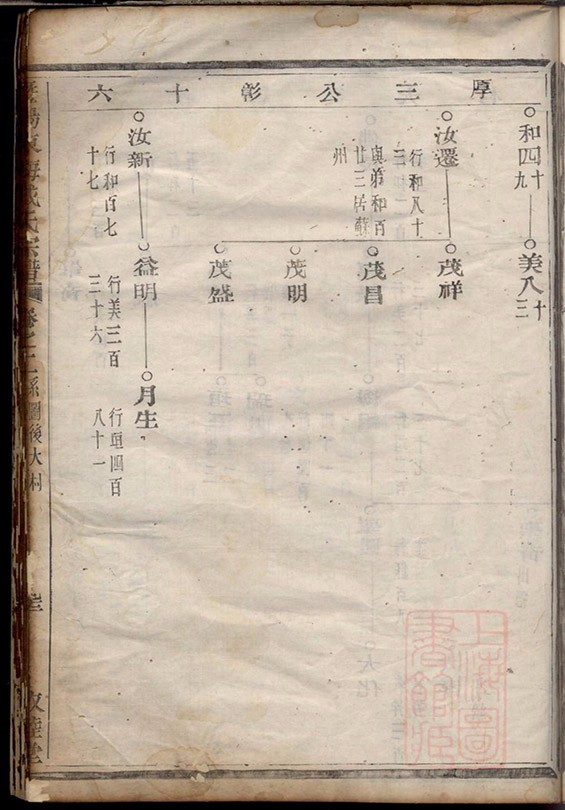 厚三公彰十六
和四十九
美八十三
汝遷
行和八十三
與弟和百廿三居蘇州
茂祥
茂昌
茂明
茂盛
汝新
行和百七十七
益明
行美三百三十六
月生
行垣四百八十一
氏宗譜
卷之二
系圖後大村
上海圖書館藏